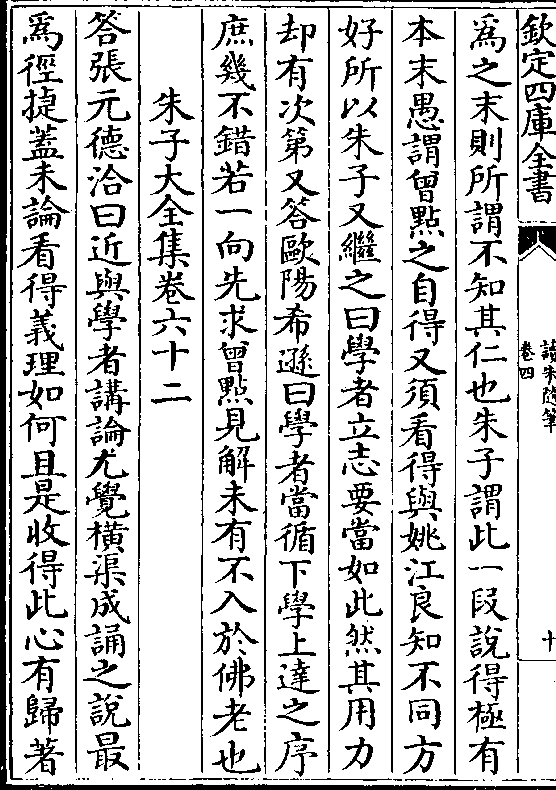 欽定四庫全書
讀朱隨筆
卷四
十
爲之末則所謂不知其仁也朱子謂此一段說得極有
本末愚謂曾點之自得又須看得與姚江良知不同方
好所以朱子又繼之曰學者立志要當如此然其用力
却有次第又答歐陽希遜曰學者當循下學上達之序
庶幾不錯若一向先求曾點見解未有不入於佛老也
朱子大全集卷六十二
答張元德洽曰近與學者講論尤覺橫渠成誦之說最
爲徑捷蓋未論看得義理如何且是收得此心有歸著